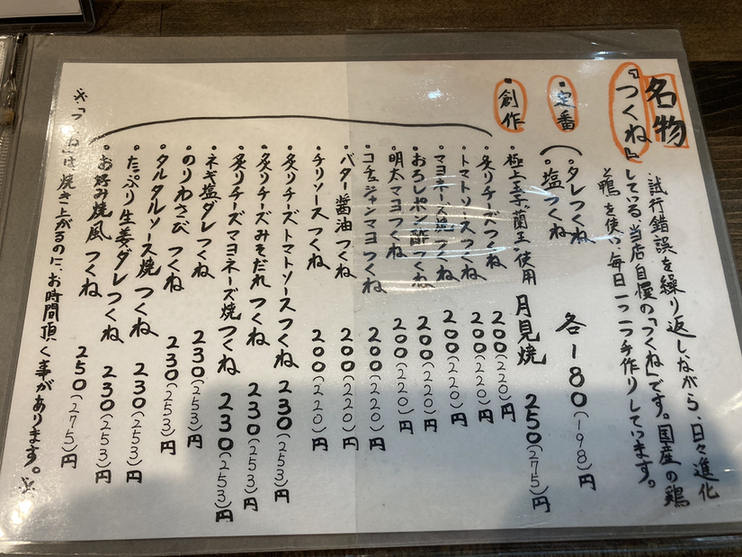 名物
『つくね』
試行錯誤を繰り返しながら、日々進化
している、当店自慢の「つくね」です。国産の鶏
と鴨を使い、毎日一つ一つ手作りしています。
・定番
・タレつくね
・塩つくね
各180(198)円
・創作
・極上玉子“蘭王”使用 月見焼 250(275)円
・炙りチーズつくね 200(220)円
・トマトソースつくね 200(220)円
・マヨネーズ焼つくね 200(220)円
・おろしポン酢つくね 200(220)円
・明太マヨつくね 200(220)円
・コチュジャンマヨつくね 200(220)円
・バター醤油つくね 200(220)円
・チリソースつくね 200(220)円
・炙りチーズトマトソースつくね 230(253)円
・炙りチーズみそだれつくね 230(253)円
・炙りチーズマヨネーズ焼つくね 230(253)円
・ネギ塩ダレつくね 230(253)円
・のりわさびつくね 230(253)円
・タルタルソース焼つくね 230(253)円
・たっぷり生姜ダレつくね 230(253)円
・お好み焼風つくね 250(275)円
※つくねは焼き上がるのに、お時間頂く事があります。※